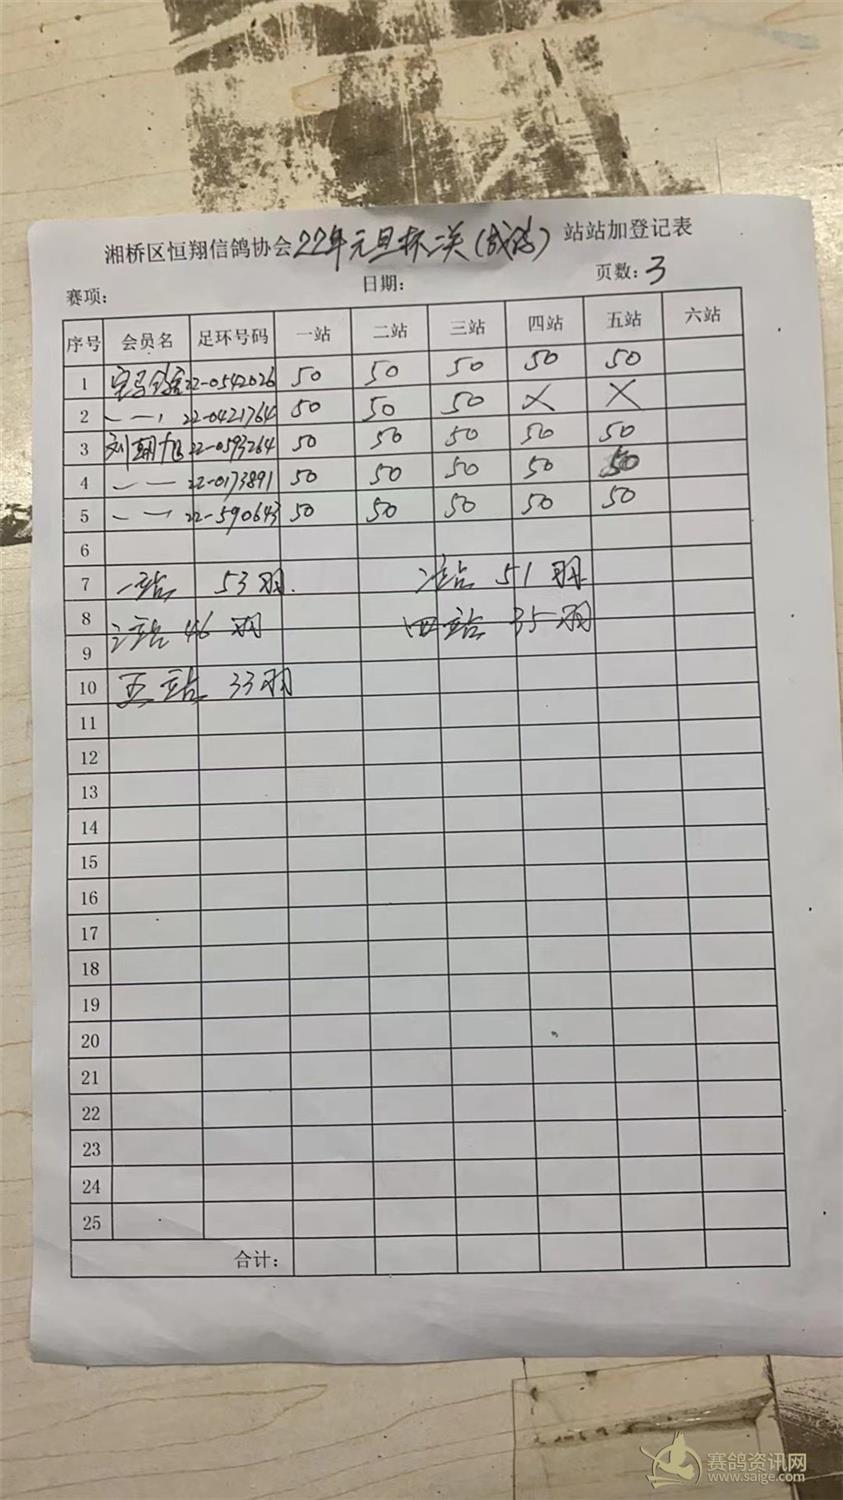 湘桥区恒翔信鸽协会22年元旦杯二关(成鸽)站站加登记表
赛项: 日期: 页数: 3
序号 会员名 足环号码 一站 二站 三站 四站 五站 六站
1 22-0542026 50 50 50 50 50
2 〃 22-0421764 50 50 50 X X
3 刘朝旭 22-0593264 50 50 50 50 50
4 〃 22-0173891 50 50 50 50 50
5 〃 22-590643 50 50 50 50 50
6
7 一站 53羽. 二站 51羽
8 三站 46羽 四站 35羽
9
10 五站 33羽
11
12
13
14
15
16
17
18
19
20
21
22
23
24
25
合计:
赛鸽资讯网
www.saige.com